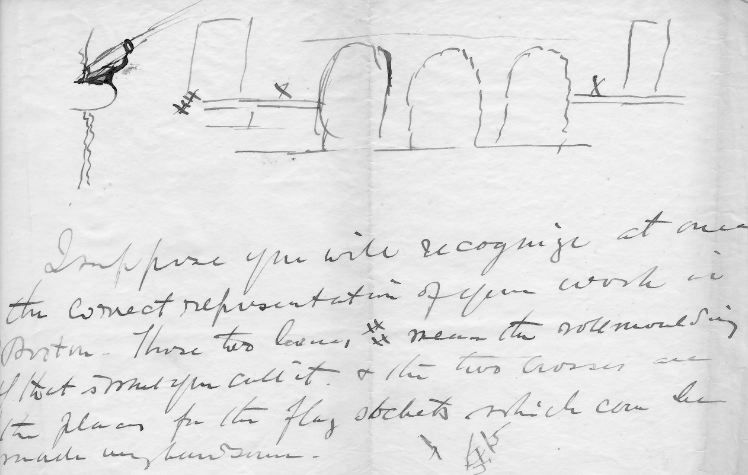 I suppose you will recognize at once
the correct representation of your work in
Boston. Those two lines, mean the rollmoulding
if that is what you call it. & the two crosses are
the places for the flag sockets which can be
made very handsome.